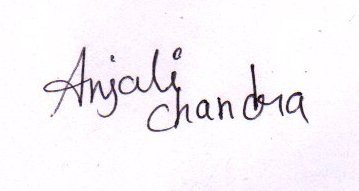 Anjali
Chandra